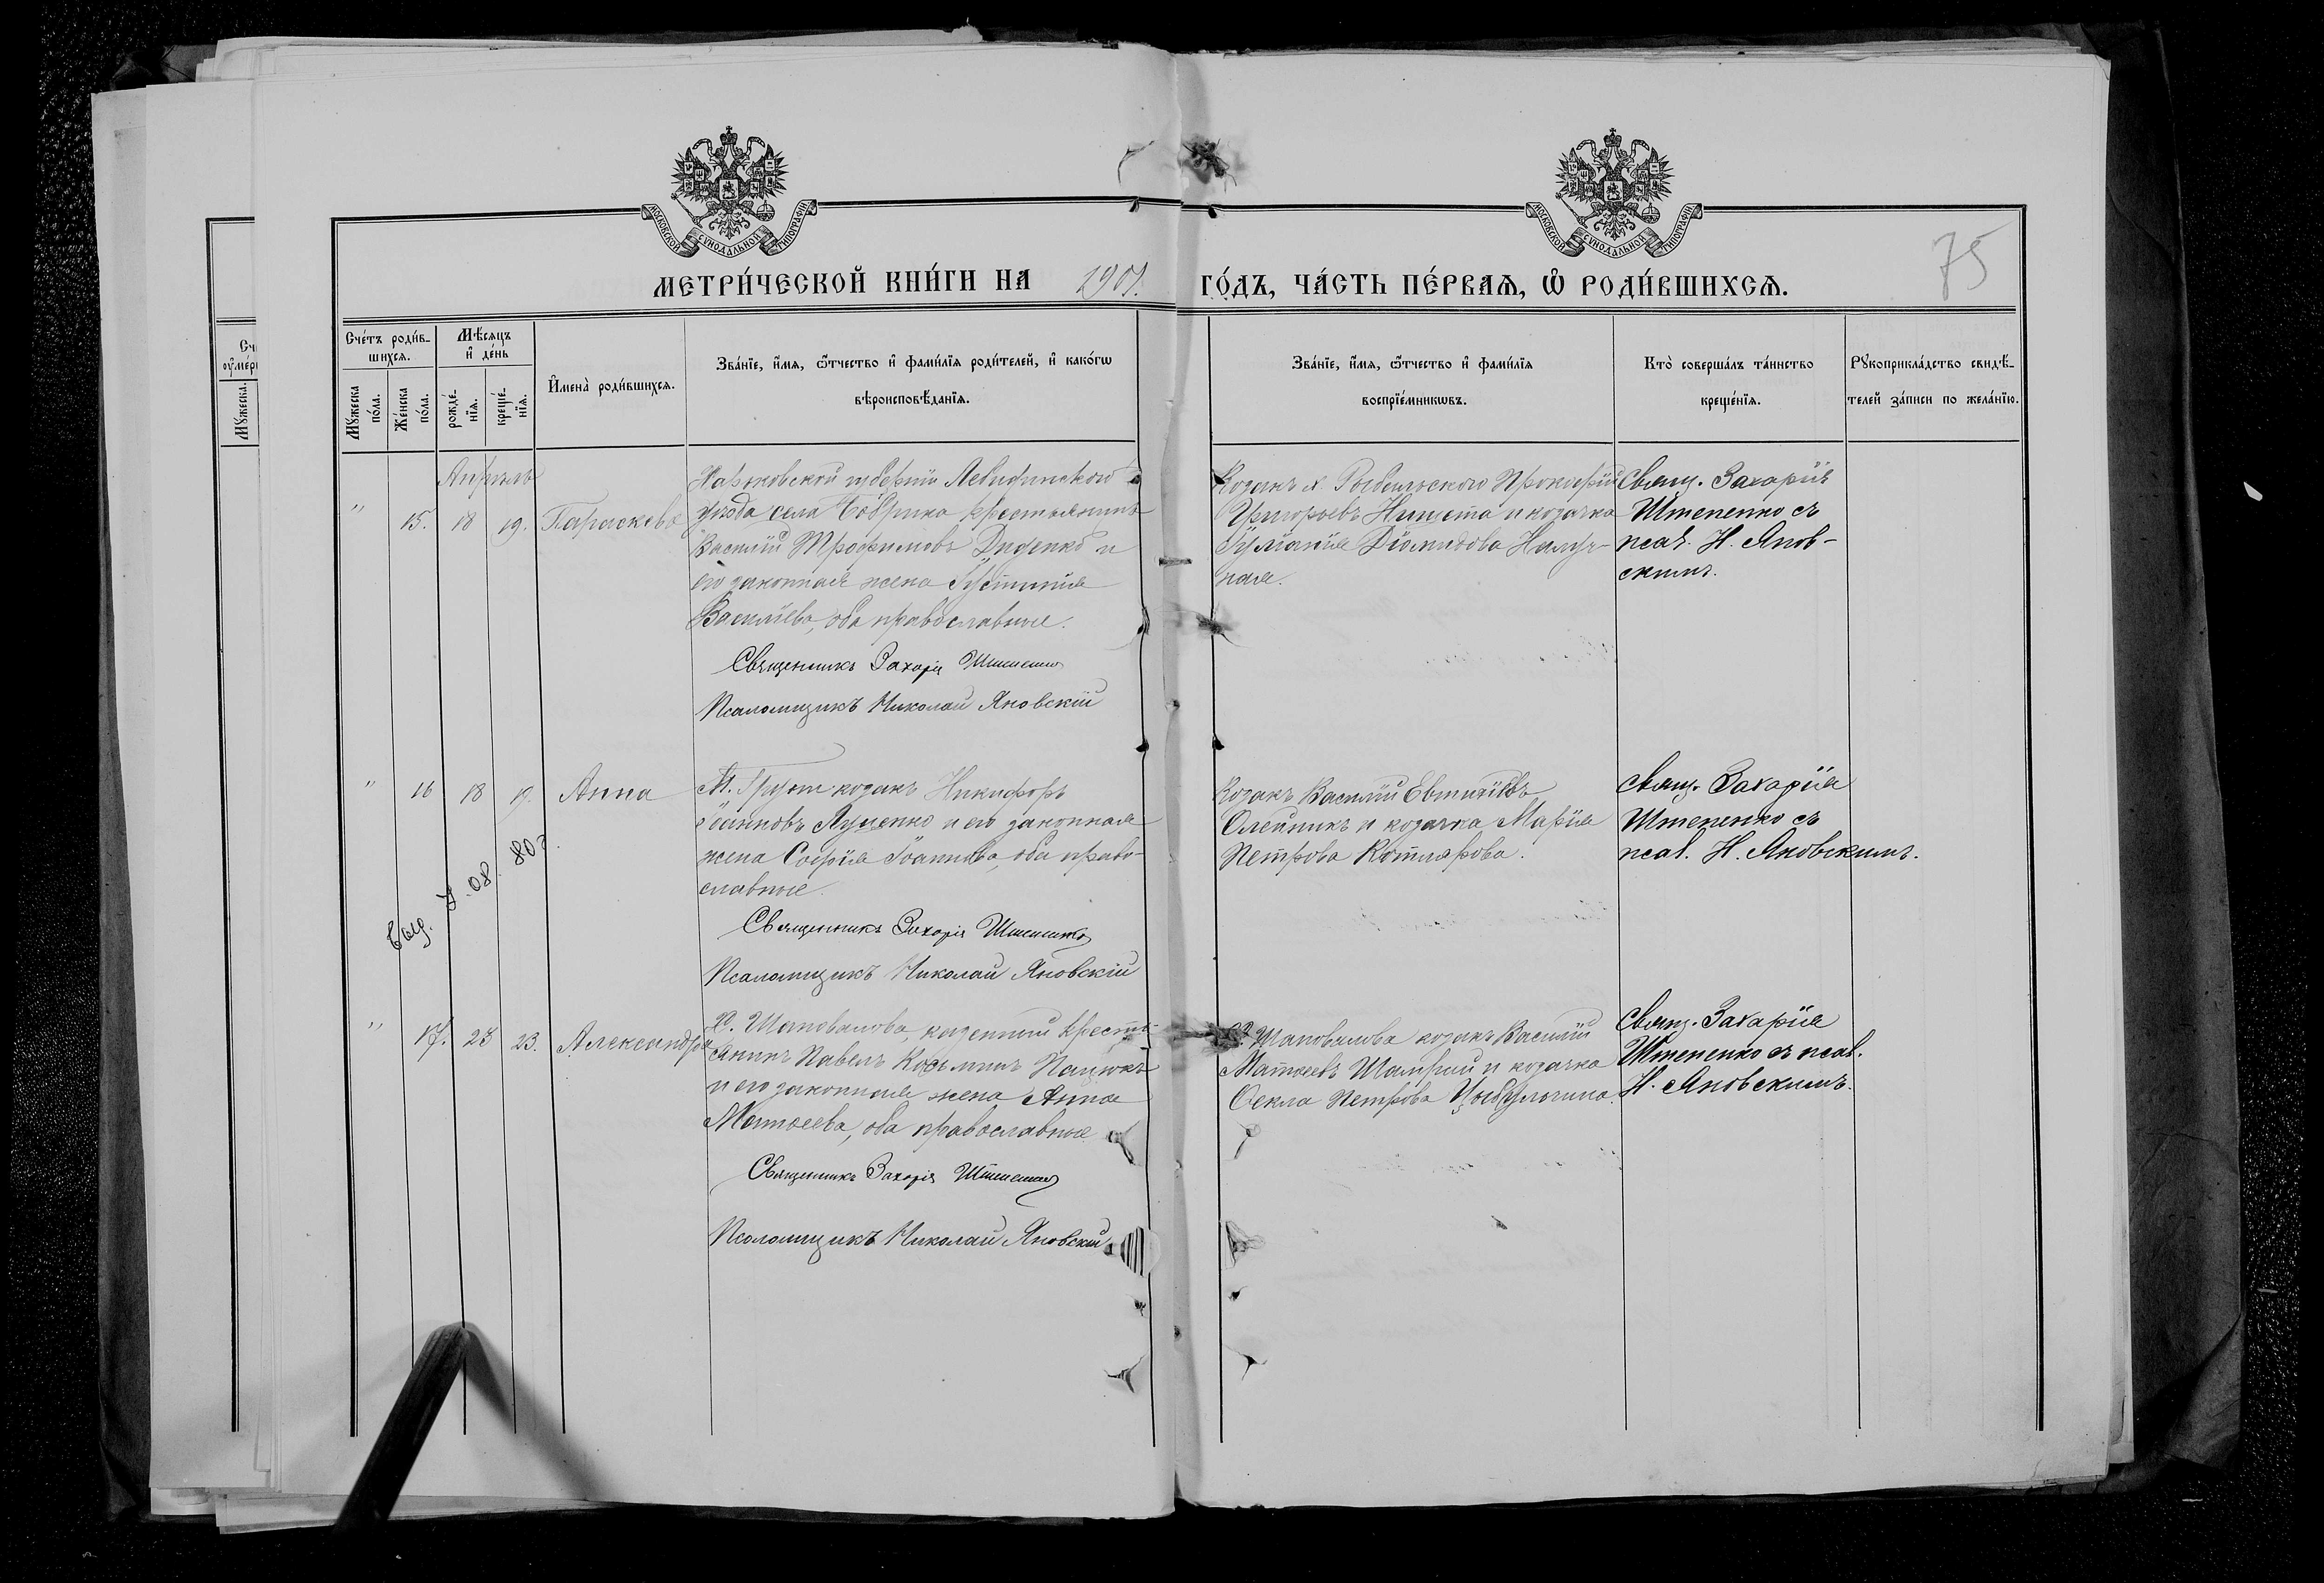 МОСКОВСКОЙ СУНОДАЛЬНОЙ ТИПОГРАФІИ
МОСКОВСКОЙ СУНОДАЛЬНОЙ ТИПОГРАФІИ
МЕТРИ́ЧЕСКОЙ КНИ́ГИ НА 1901. ГО́ДЪ, ЧА́СТЬ ПЕ́РВАѦ, Ѽ РОДИ́ВШИХСѦ.
75
Сче́тъ роди́в-
шихся.
Мѣ́сяцъ
и҆ де́нь
Мꙋ́жеска
по́ла.
Же́нска
по́ла.
рожде́-
нїѧ.
креще́-
нїѧ.
И҆мена̀ роди́вшихся.
Зва́нїе, и҆́мѧ, ѻ҆́тчество и҆ фами́лїѧ роди́телей, и҆ како́гѡ
вѣроисповѣ́данїѧ.
Зва́нїе, и҆́мѧ, ѻ҆́тчество и҆ фами́лїѧ
воспрїе́мникѡвъ.
Кто̀ соверша́лъ та́инство
креще́нїѧ.
Рꙋкоприкла́дство свидѣ́-
телей за́писи по жела́нїю.
Мꙋ́жеска.
Апрѣль
" 15. 18 19. Параскева
Харьковской губерніи Лебединскаго
уѣзда села Бобрика крестьянинъ
Василій Трофимовъ Диденко и
его законная жена Іустинія
Василіева, оба православные.
Священникъ Захарія Штепенко
Псаломщикъ Николай Яновскій
Козакъ х. Прокофій
Григорьевъ Нищета и козачка
Іуліанія Діомидова
ная.
Свящ. Захарія
Штепенко съ
псал. Н. Янов-
скимъ.
" 16 18 19. Анна
М. Грунь козакъ Никифоръ
Іоанновъ Луценко и его законная
жена Софія Іоаннова, оба право-
славные.
Священникъ Захарія Штепенко
Псаломщикъ Николай Яновскій
Козакъ Василій Евтихіевъ
Олейникъ и козачка Марія
Петрова Котлярова.
Свящ. Захарія
Штепенко съ
псал. Н. Яновскимъ.
" 17. 23 23. Александра
х. Шаповалова, казенный кресть-
янинъ Павелъ Козьминъ Пацюкъ
и его законная жена Анна
Матѳеева, оба православные
Священникъ Захарія Штепенко
Псаломщикъ Николай Яновскій
х. Шаповалова козакъ Василій
Матѳеевъ и козачка
Ѳекла Петрова Цыбульгина.
Свящ. Захарія
Штепенко съ псал.
Н. Яновскимъ.